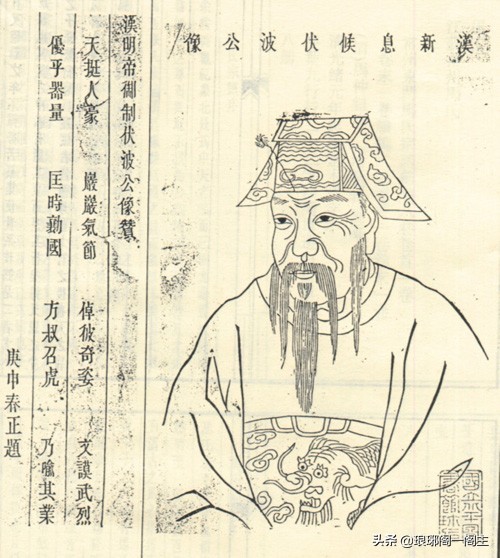 漢新息候伏波公像
漢明帝御制伏波公像贊
天挺人豪 巖巖氣節 倬彼奇姿 文謨武烈
優乎器量 匡時國 方叔召虎 乃喻其業
庚申春正題
头条 @琅琊阁一阁主